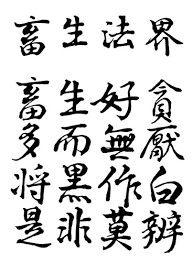 畜生法界
畜生好貪
多而無厭
将黑作白
是非莫辨